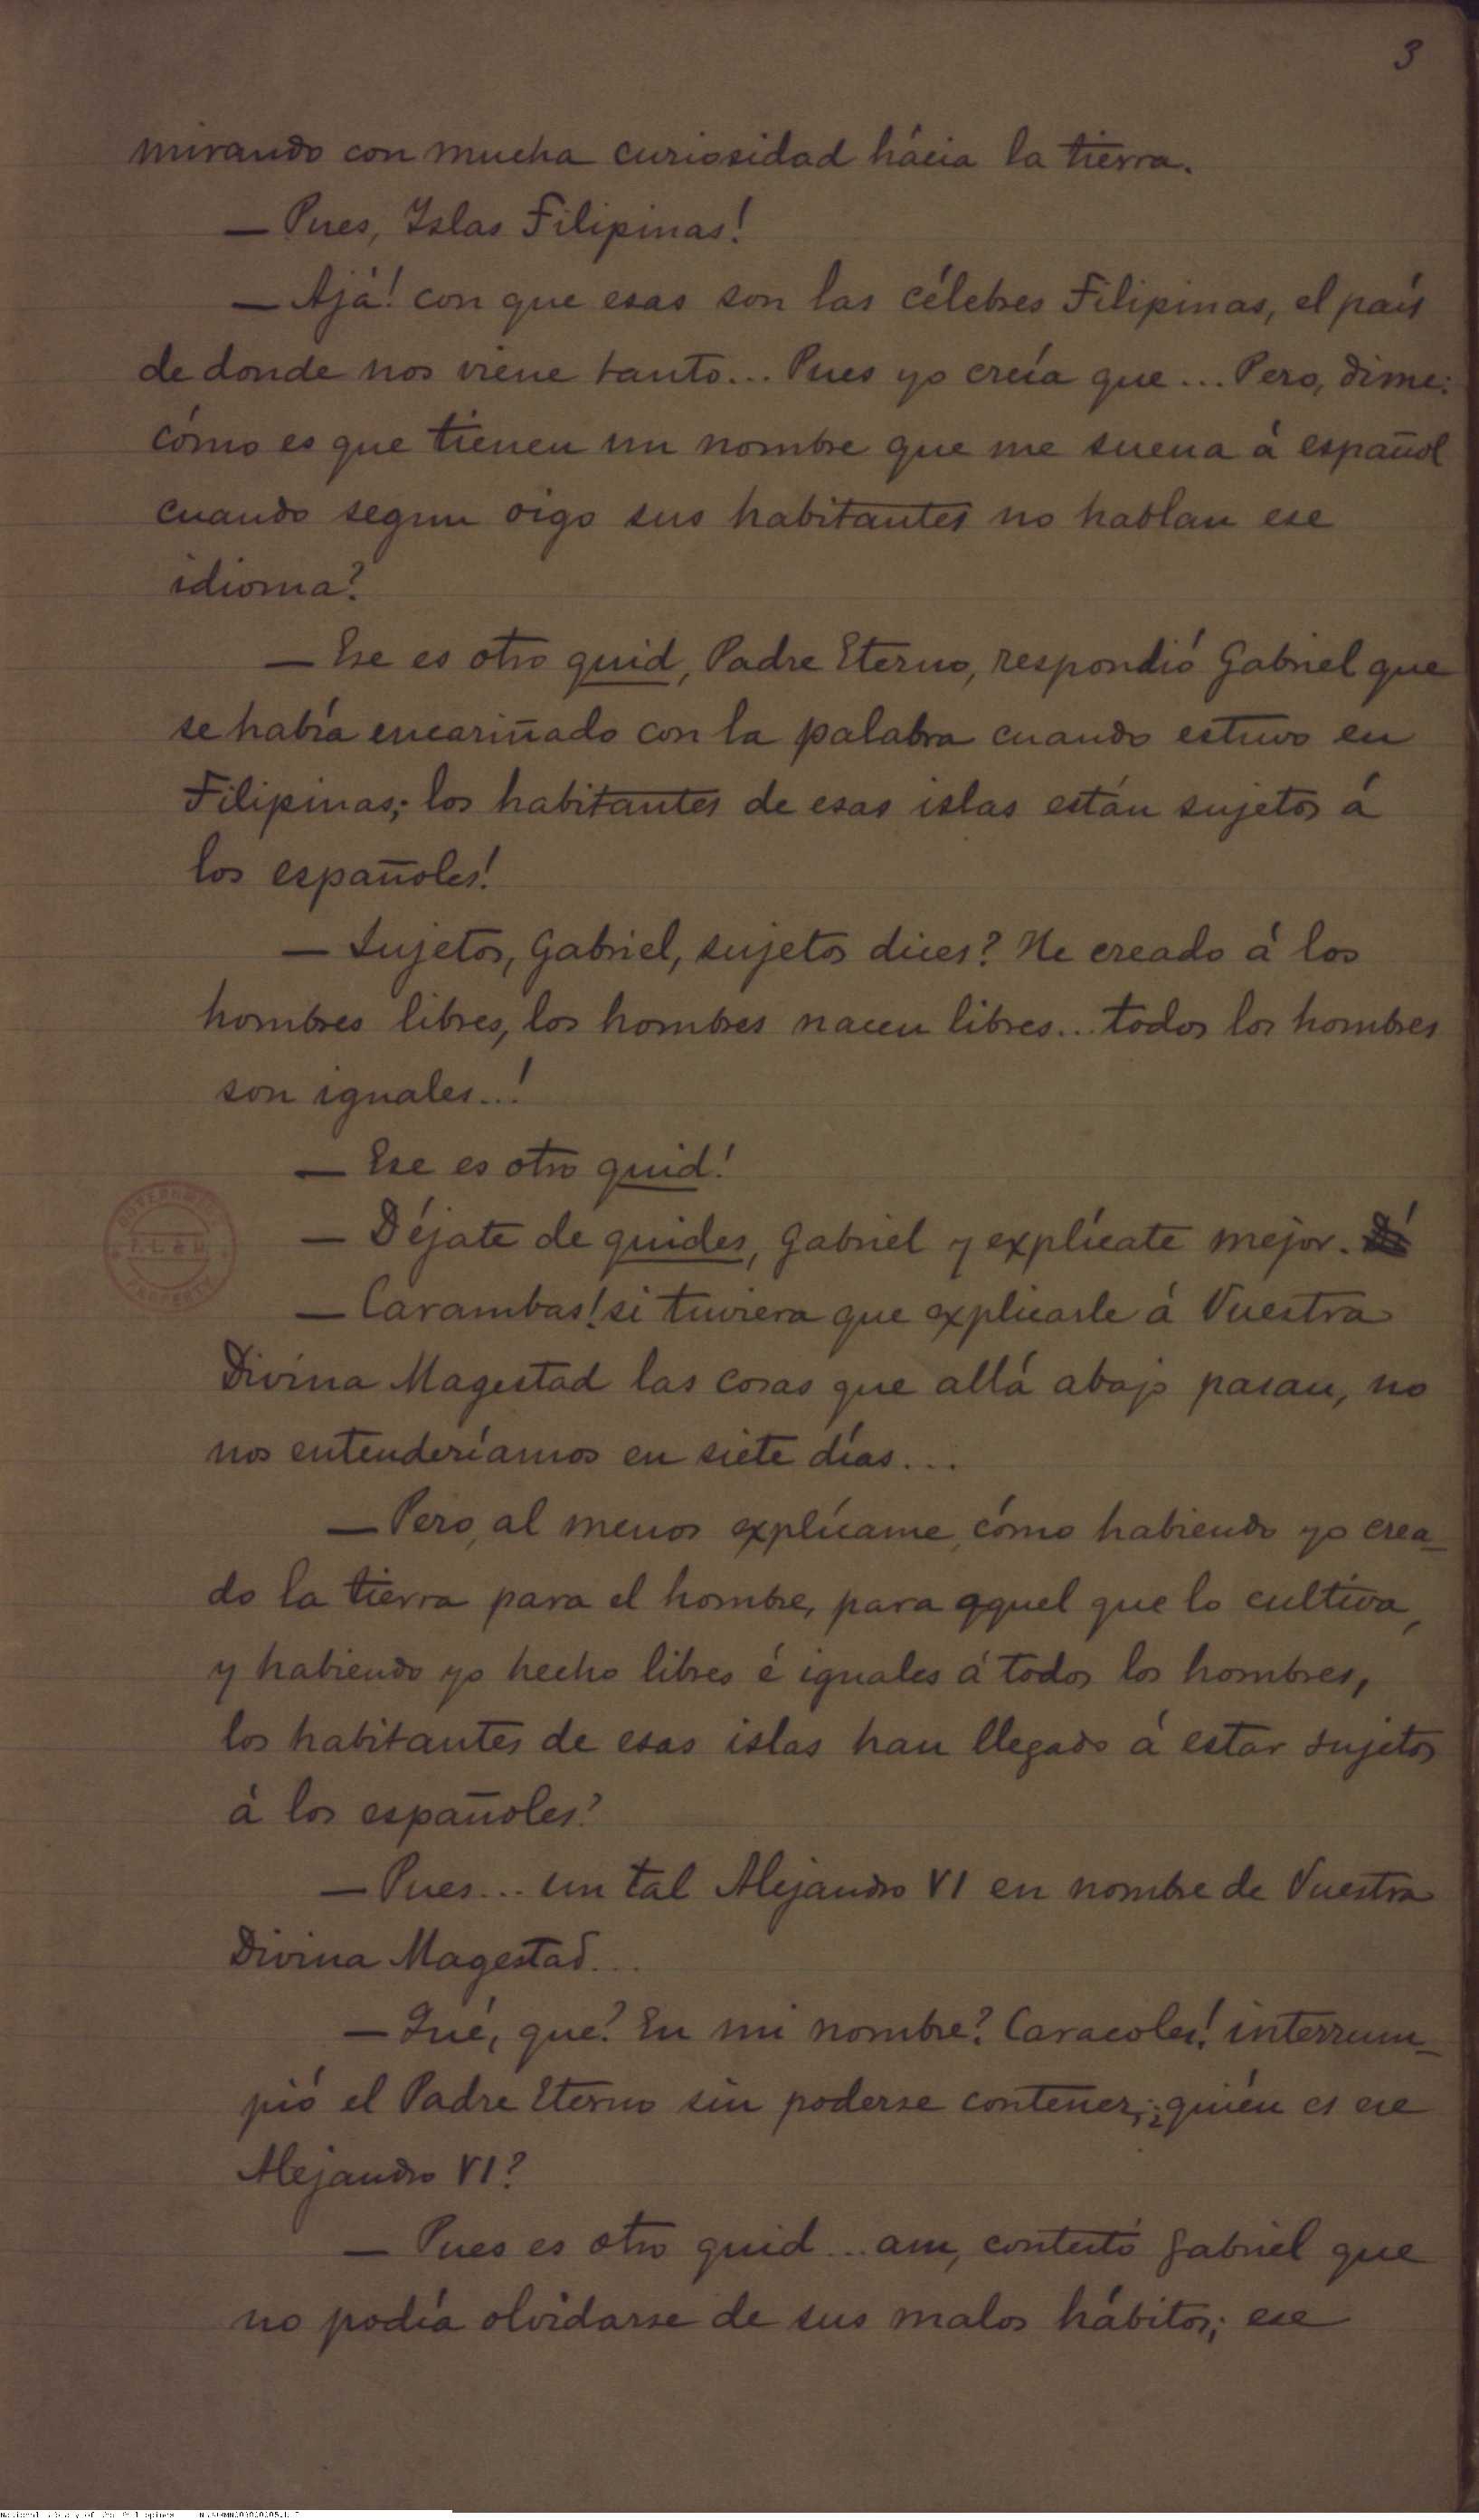 3
mirando con mucha curiosidad hácia la tierra.
— Pues, Islas Filipinas!
— Ajá! con que esas son las célebres Filipinas, el país
de donde nos viene tanto... Pues yo creía que... Pero, dime:
cómo es que tienen un nombre que me suena á español
cuando segun oigo sus habitantes no hablan ese
idioma?
— Ese es otro quid, Padre Eterno, respondió Gabriel que
se había encariñado con la palabra cuando estuvo en
Filipinas; los habitantes de esas islas están sujetos á
los españoles!
— Sujetos, Gabriel, sujetos dices? He creado á los
hombres libres, los hombres nacen libres... todos los hombres
son iguales...!
— Ese es otro quid!
— Déjate de quides, Gabriel y explícate mejor.
— Carambas! si tuviera que explicarle á Vuestra
Divina Magestad las cosas que allá abajo pasan, no
nos entenderíamos en siete días...
— Pero, al menos explícame, cómo habiendo yo crea-
do la tierra para el hombre, para aquel que lo cultiva,
y habiendo yo hecho libres é iguales á todos los hombres,
los habitantes de esas islas han llegado á estar sujetos
á los españoles?
— Pues... un tal Alejandro VI en nombre de Vuestra
Divina Magestad...
— Qué, que? En mi nombre? Caracoles! interrum-
pió el Padre Eterno sin poderse contener; ¿quién es ese
Alejandro VI?
— Pues es otro quid... am, contestó Gabriel que
no podía olvidarse de sus malos hábitos; ese
GOVERNMENT
PROPERTY
National Library of the Philippines